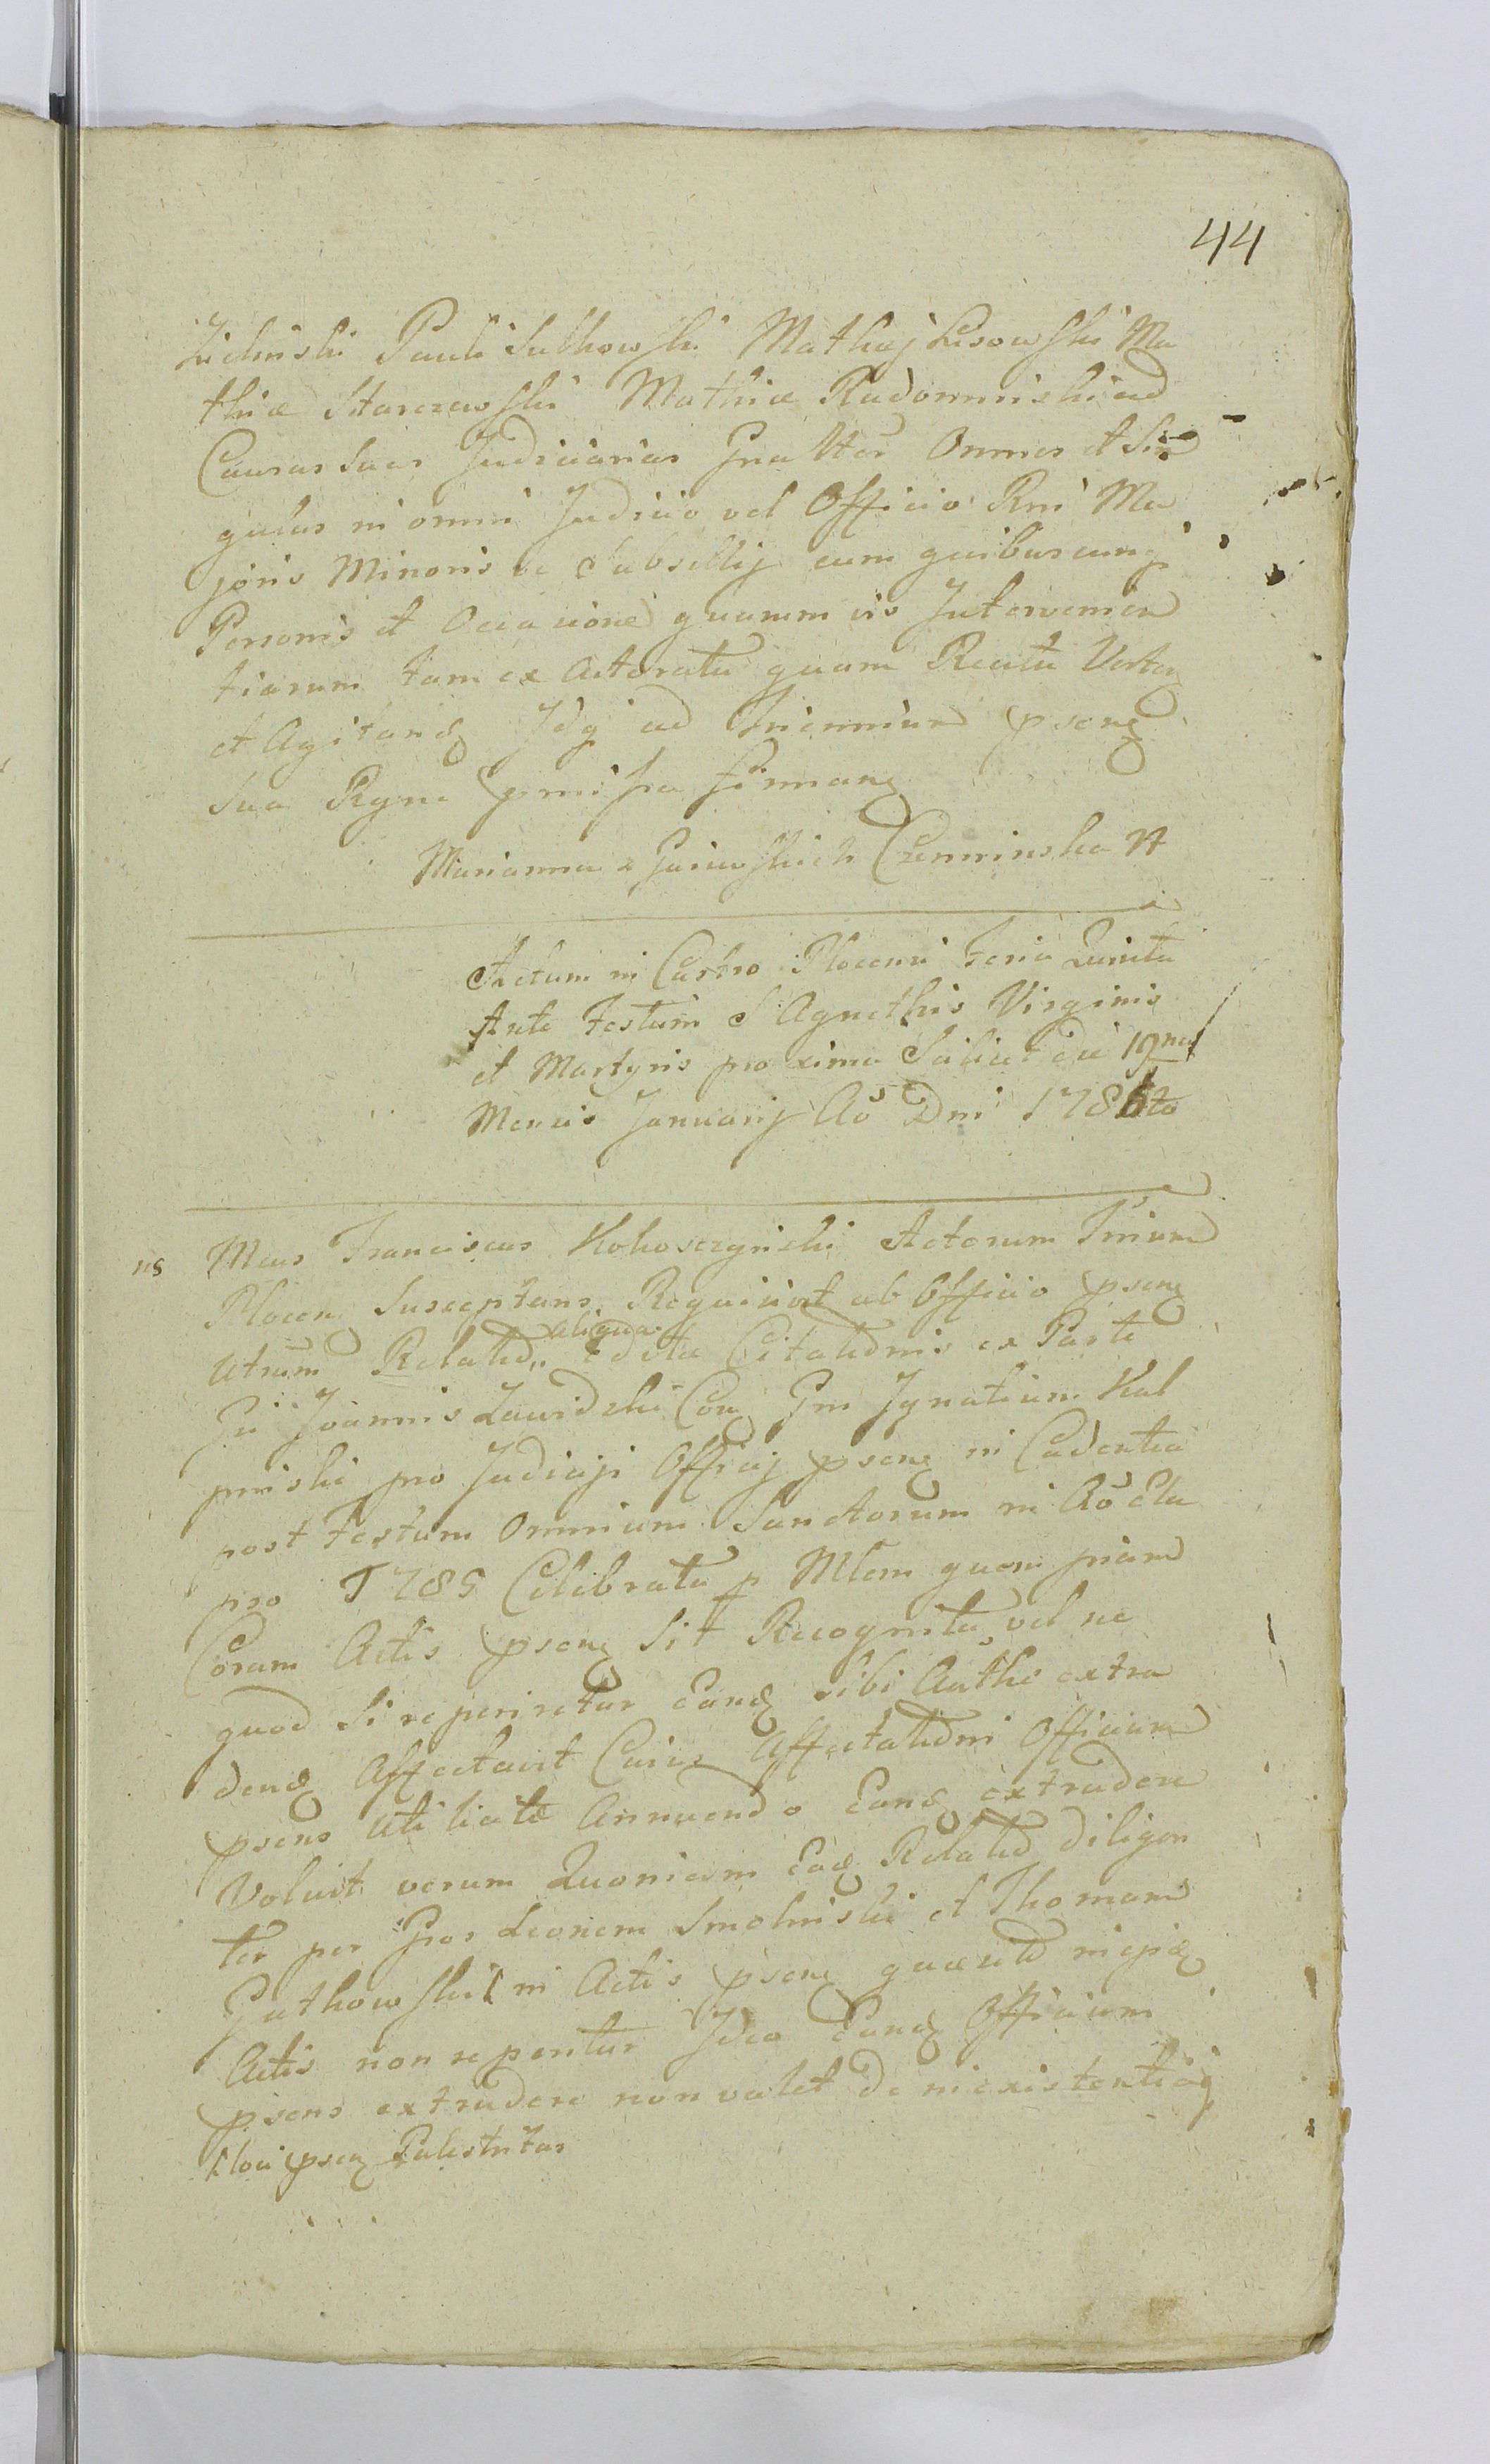 44
Zielinski Pauli Sulkowski Mathaj Lisowski Ma
thiæ Starczewski Mathiæ Radominski ad
Causas suas Judiciarias Gnalter Omnes et Sin
gulas in omni Judicio vel Officio Rni Ma
joris Minoris ve Subsellij cum quibuscunq
Personis et Occasione quarumvis Intervenien
tiarum tam ex Actoratu quam Reatu Verten
et Agitand Idq ad Triennium psens
Sua Rgne pmissa firmans
Marianna z Gasiewskich Czerminska
Actum in Castro Plocensi Feria Quinta
Ante Festum S Agnethis Virginis
et Martyris proxima Scilicet die 19na
Mensis Januarij Ao Dni 1786to
ns Mcus Franciscus Kokoszczynski Actorum Trium
Plocen Susceptans Requisivit ab Officio psens
Utrum Relatio aliqua Editæ Citationis ex Parte
Gsi Joannis Zawidzki Con Gm Ignatium Kul
pinski pro Judicijs Officij psens in Cadentia
post Festum Omnium Sanctorum in Ao Ela
pso 1785 Celebrata p Mlem quem piam
Coram Actis psens Sit Recognita vel ne
quod si reperiretur Eand sibi Authe extra
dend Affectavit Cujus Affectationi Officium
psens Utiliate Annuendo Eand extradere
Voluit verum Quoniam Ead Relatio diligen
ter per Gsos Leonem Smolinski et Thomam
Gutkowski in Actis psens quæsita in ejsd
Actis non reperitur Ideo Eand Officium
psens extradere non valet de inexistentia q
sloci psens Palestritas